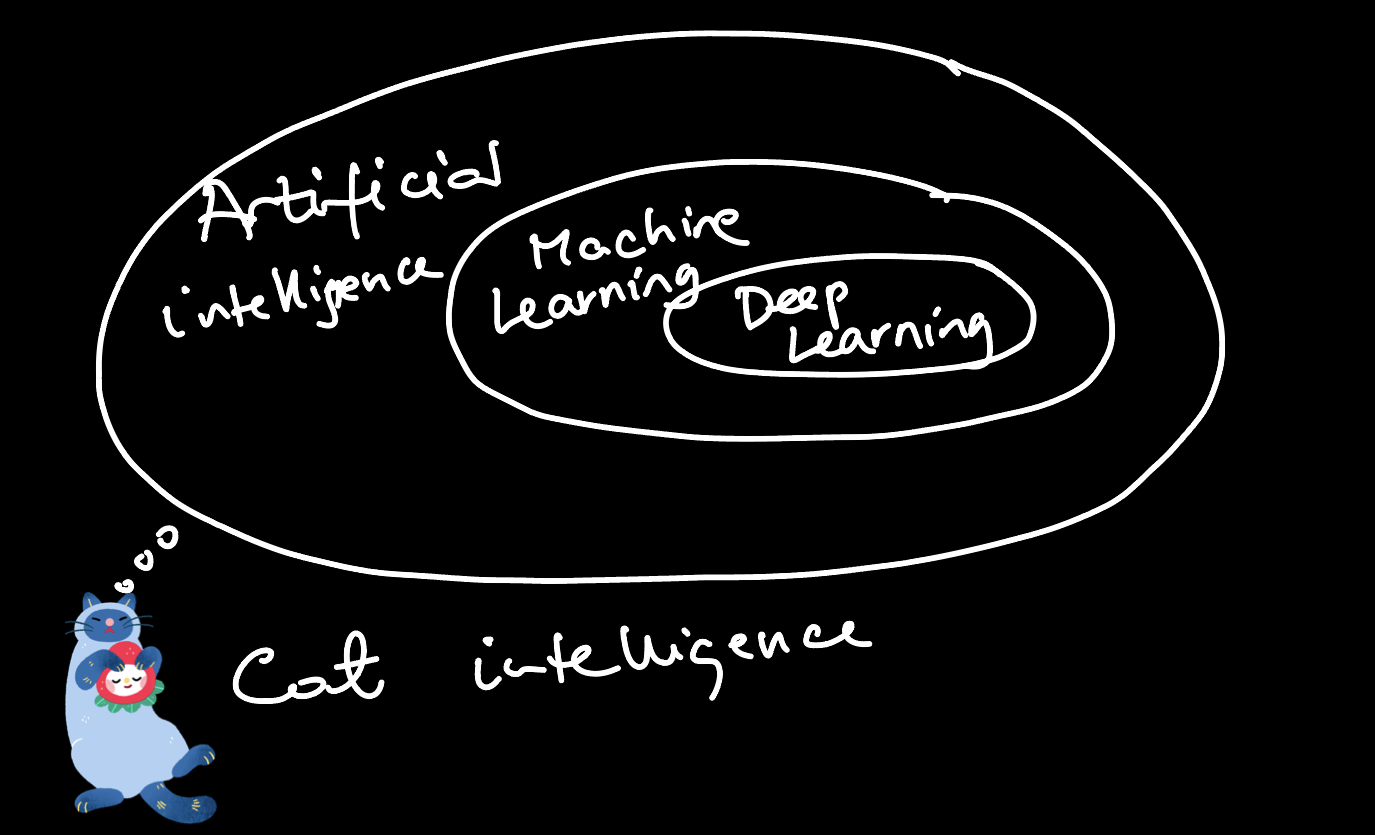 Artificial
intelligence
Machine
Learning
Deep
Learning
Cat intelligence